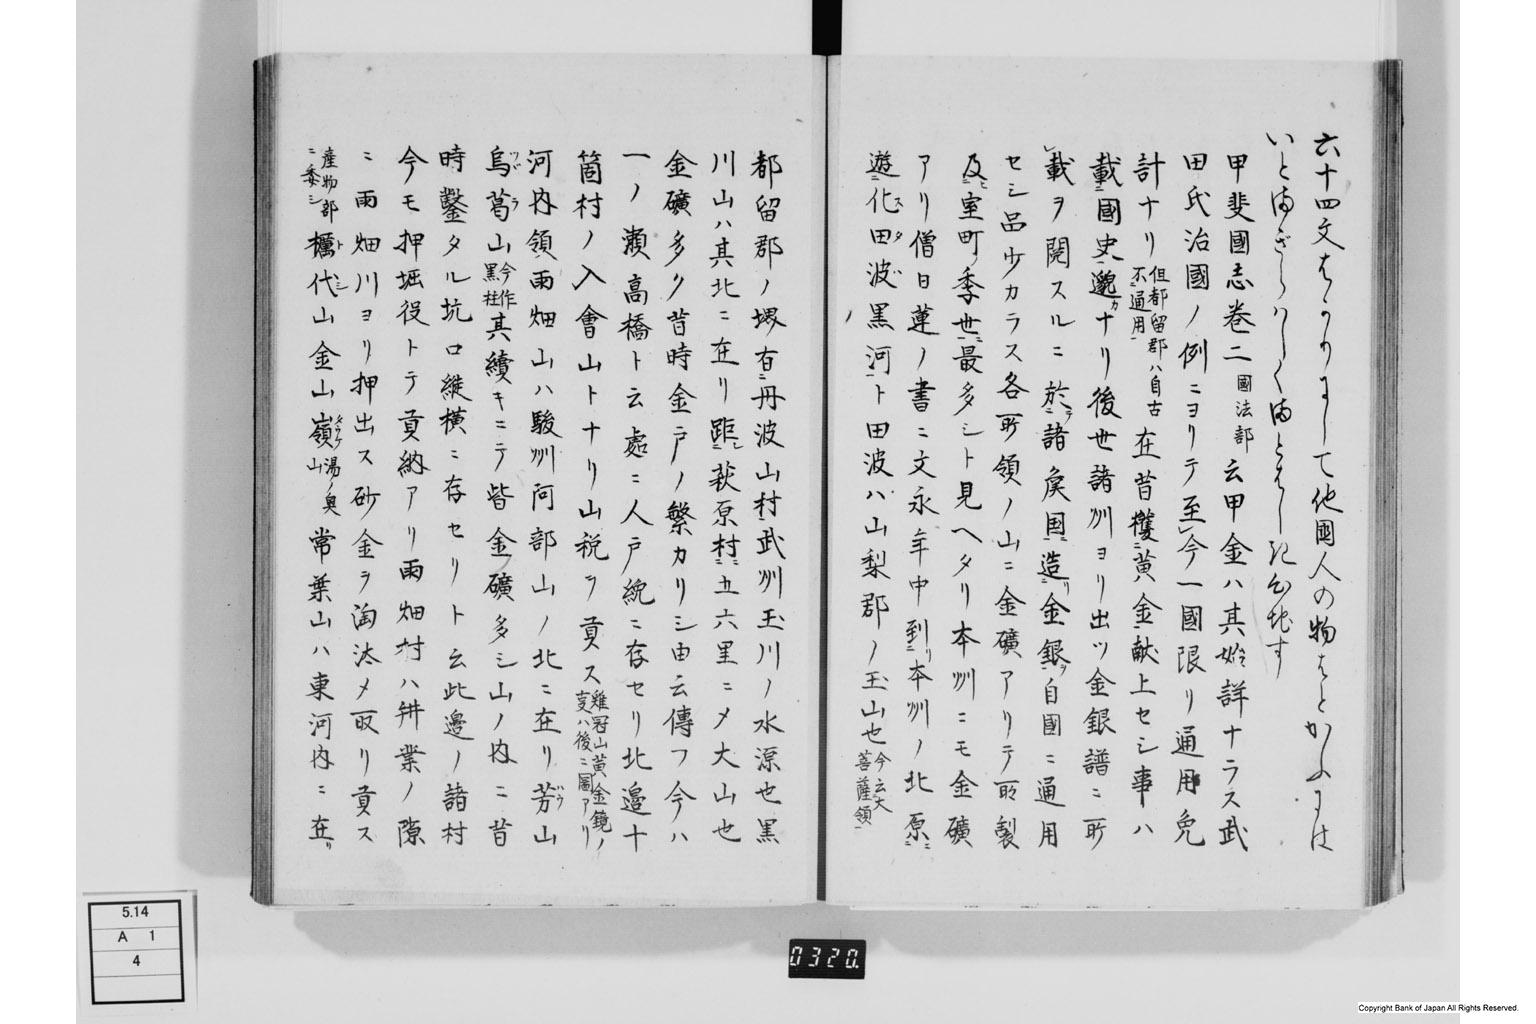 六十四文
て他國人の物
甲斐國志巻二 國法部 云甲金ハ其始詳ナラス武
田氏治國ノ例ニヨリテ至今一國限リ通用免
計ナリ 但都留郡ハ自古不通用 在昔獲黄金献上セシ事ハ
載國史邈ナリ後世諸州ヨリ出ツ金銀譜ニ所
載ヲ閲スルニ於諸矦国造金銀自國ニ通用
セシ品少カラス各所領ノ山ニ金礦アリテ所製
及室町季世最多シト見ヘタリ本州ニモ金礦
アリ僧日蓮ノ書ニ文永年中到本州ノ北原
遊化田波黒河ト田波ハ山梨郡ノ玉山也 今云大菩薩嶺
都留郡ノ堺有丹波山村武州玉川ノ水源也黒
川山ハ其北ニ在リ距萩原村五六里ニメ大山也
金礦多ク昔時金戸ノ繁カリシ由云傳フ今ハ
一ノ瀬高橋ト云處ニ人戸纔ニ存セリ北邉十
箇村ノ入會山トナリ山税ヲ貢ス 雞冠山黄金鏡ノ支ハ後ニ圖アリ
河内領雨畑山ハ駿州阿部山ノ北ニ在リ芳山
烏葛山 今作黒桂 其續キニテ皆金礦多シ山ノ内ニ昔
時鑿タル坑口縦横ニ存セリト云此邉ノ諸村
今モ押堀役トテ貢納アリ雨畑村ハ耕業ノ隙
ニ雨畑川ヨリ押出ス砂金ヲ淘汰メ取リ貢ス
産物部ニ委シ 代山金山嶺 湯ノ奥山 常葉山ハ東河内ニ在リ
5.14
A 1
4
0320
Copyright Bank of Japan All Rights Reserved.